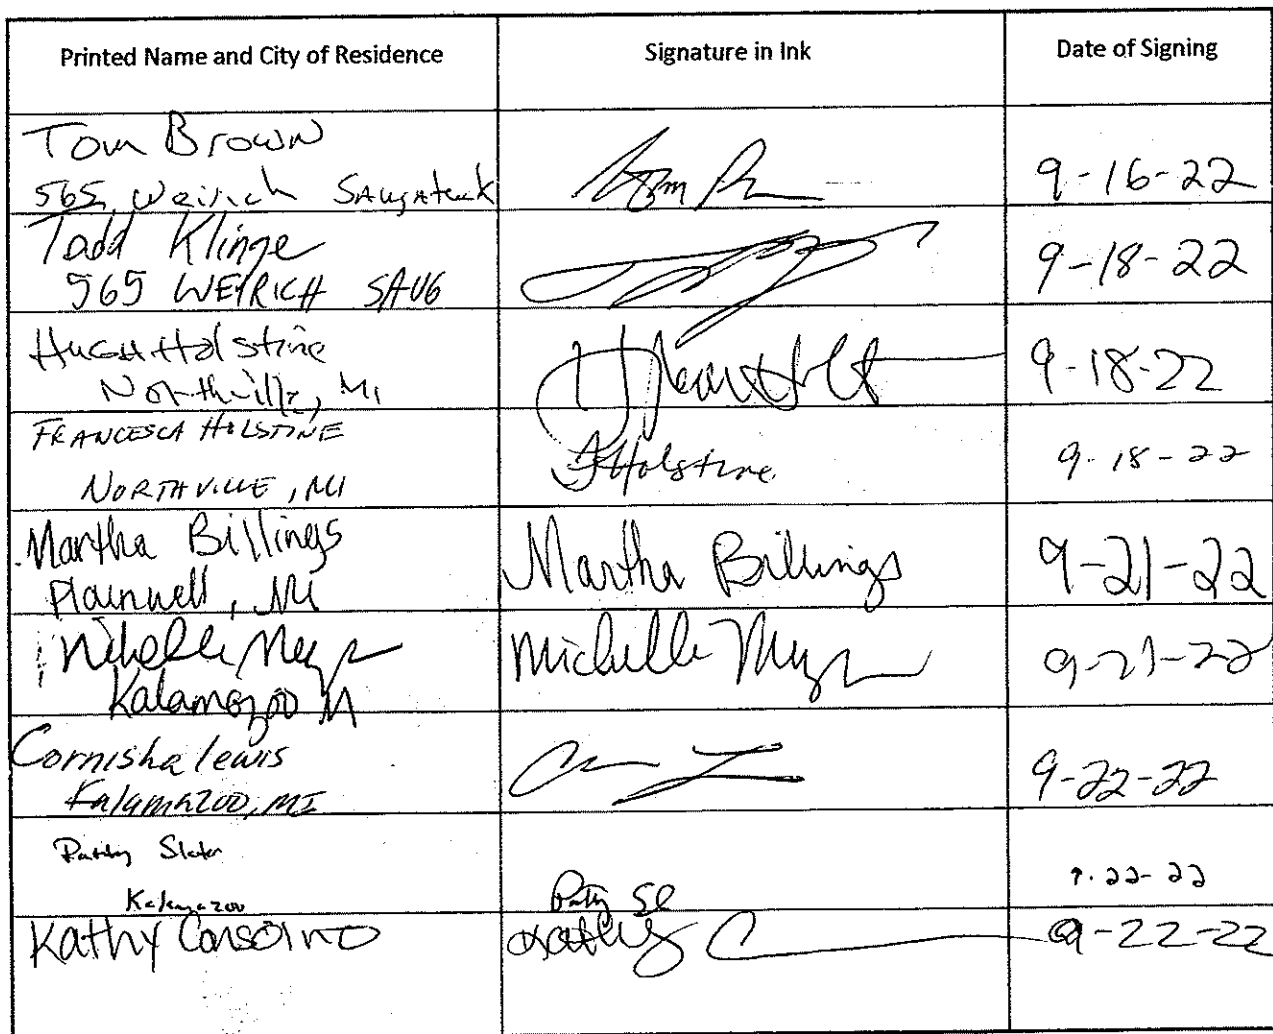 Printed Name and City of Residence
Signature in Ink
Date of Signing
Tom Brown
565 Weirich Saugatuck
Tom
9-16-22
Todd Klinge
565 WEIRICH SAUG
9-18-22
Hugh Holstine
Northville, MI
9-18-22
FRANCESCA HOLSTINE
NORTHVILLE, MI
FHolstine
9-18-22
Martha Billings
Plainwell, MI
Martha Billings
9-21-22
Michelle Meyer
Kalamazoo M
Michelle Meyer
9-21-22
Cornisha lewis
Kalamazoo, MI
9-22-22
Slater
Kalamazoo
Patty Sl
9-22-22
Kathy Consoino
Kathy C
9-22-22